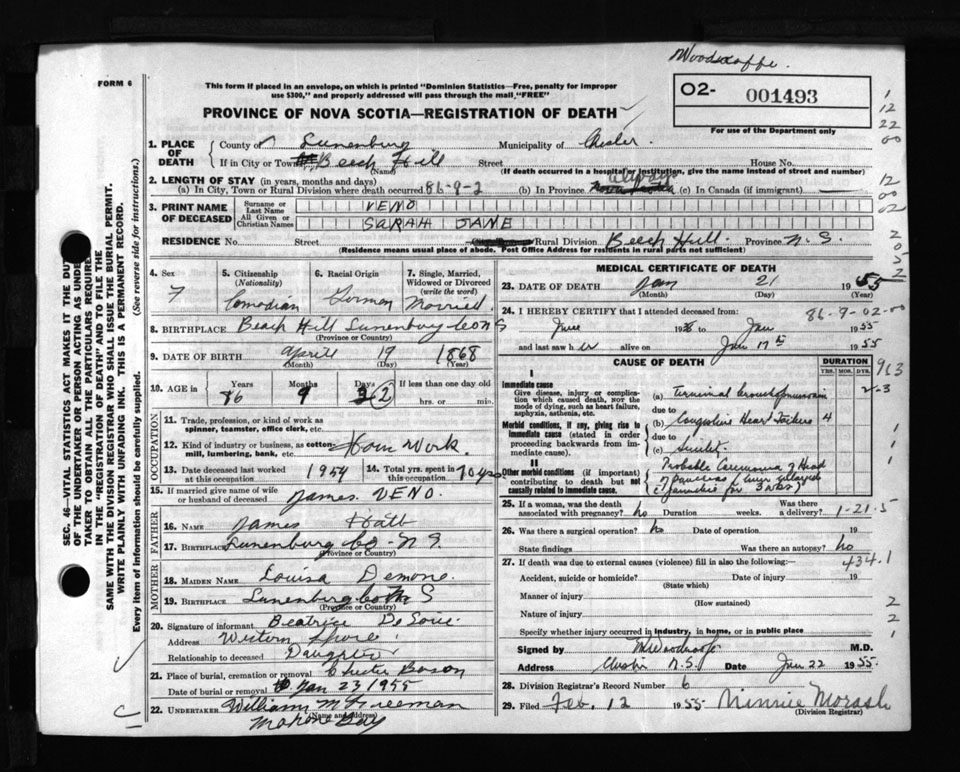 Woodroffe.
FORM 6
This form if placed in an envelope, on which is printed "Dominion Statistics—Free, penalty for improper
use $300," and properly addressed will pass through the mail "FREE"
PROVINCE OF NOVA SCOTIA—REGISTRATION OF DEATH
O2- 001493
For use of the Department only
1
12
22
00
12
00
02
2
0
5
2
1. PLACE OF DEATH County of Lunenburg Municipality of Chester.
If in City or Town Beech Hill Street House No.
(Name) (If death occurred in a hospital or institution, give the name instead of street and number)
2. LENGTH OF STAY (in years, months and days)
(a) In City, Town or Rural Division where death occurred 86-9-2 (b) In Province always (c) In Canada (if immigrant)
3. PRINT NAME OF DECEASED Surname or Last Name VENO
All Given or Christian Names SARAH JANE
RESIDENCE No. Street Rural Division Beech Hill. Province N.S.
(Residence means usual place of abode. Post Office Address for residents in rural parts not sufficient)
4. Sex F
5. Citizenship (Nationality) Canadian
6. Racial Origin German
7. Single, Married, Widowed or Divorced (write the word) Married
8. BIRTHPLACE Beach Hill Lunenburg Co N S
(Province or Country)
9. DATE OF BIRTH April 19 1868
(Month) (Day) (Year)
10. AGE in Years 86 Months 9 Days 2 If less than one day old
hrs. or min.
OCCUPATION
11. Trade, profession, or kind of work as
spinner, teamster, office clerk, etc.
12. Kind of industry or business, as cotton-
mill, lumbering, bank, etc. Hom Work
13. Date deceased last worked at this occupation 1954 14. Total yrs. spent in this occupation 70 yrs
15. If married give name of wife
or husband of deceased James VENO.
FATHER
16. NAME James Hatt
17. BIRTHPLACE Lunenburg Co - N S.
(Province or Country)
MOTHER
18. MAIDEN NAME Louisa Demone.
19. BIRTHPLACE Lunenburg Co N S
(Province or Country)
20. Signature of informant Beatrice
Address Western Shore
Relationship to deceased Daughter
21. Place of burial, cremation or removal Chester Basin
Date of burial or removal Jan 23 1955
22. UNDERTAKER William M Freeman
(Name and address)
Mahone Bay
MEDICAL CERTIFICATE OF DEATH
23. DATE OF DEATH Jan 21 1955
(Month) (Day) (Year)
24. I HEREBY CERTIFY that I attended deceased from: 86-9-02-00
June 19 to Jan 1955
and last saw h er alive on Jan 17th 1955
CAUSE OF DEATH
DURATION
YRS. MOS. DYS.
963
I
Immediate cause
Give disease, injury or complica-
tion which caused death, not the
mode of dying, such as heart failure,
asphyxia, asthenia, etc.
(a) Terminal 2-3
due to
Morbid conditions, if any, giving rise to
immediate cause (stated in order
proceeding backwards from im-
mediate cause).
(b) Congestive Heart Failure 4
due to
(c) Senility
II
Other morbid conditions (if important)
contributing to death but not
causally related to immediate cause.
Probable Carcinoma of Head
of Pancreas
jaundice for
25. If a woman, was the death
associated with pregnancy? no Duration weeks. Was there a delivery? 1-21-5
26. Was there a surgical operation? no Date of operation 19
State findings Was there an autopsy? no
27. If death was due to external causes (violence) fill in also the following:— 434.1
Accident, suicide or homicide? Date of injury 19
(State which)
Manner of injury
(How sustained)
Nature of injury
Specify whether injury occurred in industry, in home, or in public place
1
1
2
2
1
Signed by Woodroffe M.D.
Address Chester N.S. Date Jan 22 1955.
28. Division Registrar's Record Number 6
29. Filed Feb. 12 1955 Minnie Morash
(Division Registrar)
SEC. 46—VITAL STATISTICS ACT MAKES IT THE DUTY
TAKER OR PERSON ACTING AS UNDER
TAKER TO OBTAIN ALL THE PARTICULARS REQUIRE
IN THE "REGISTRATION OF DEATH" AND TO FILE THE
SAME WITH THE DIVISION REGISTRAR WHO SHALL ISSUE THE BURIAL PERMIT.
WRITE PLAINLY WITH UNFADING INK. THIS IS A PERMANENT RECORD.
Every item of information should be carefully supplied. (See reverse side for instructions.)